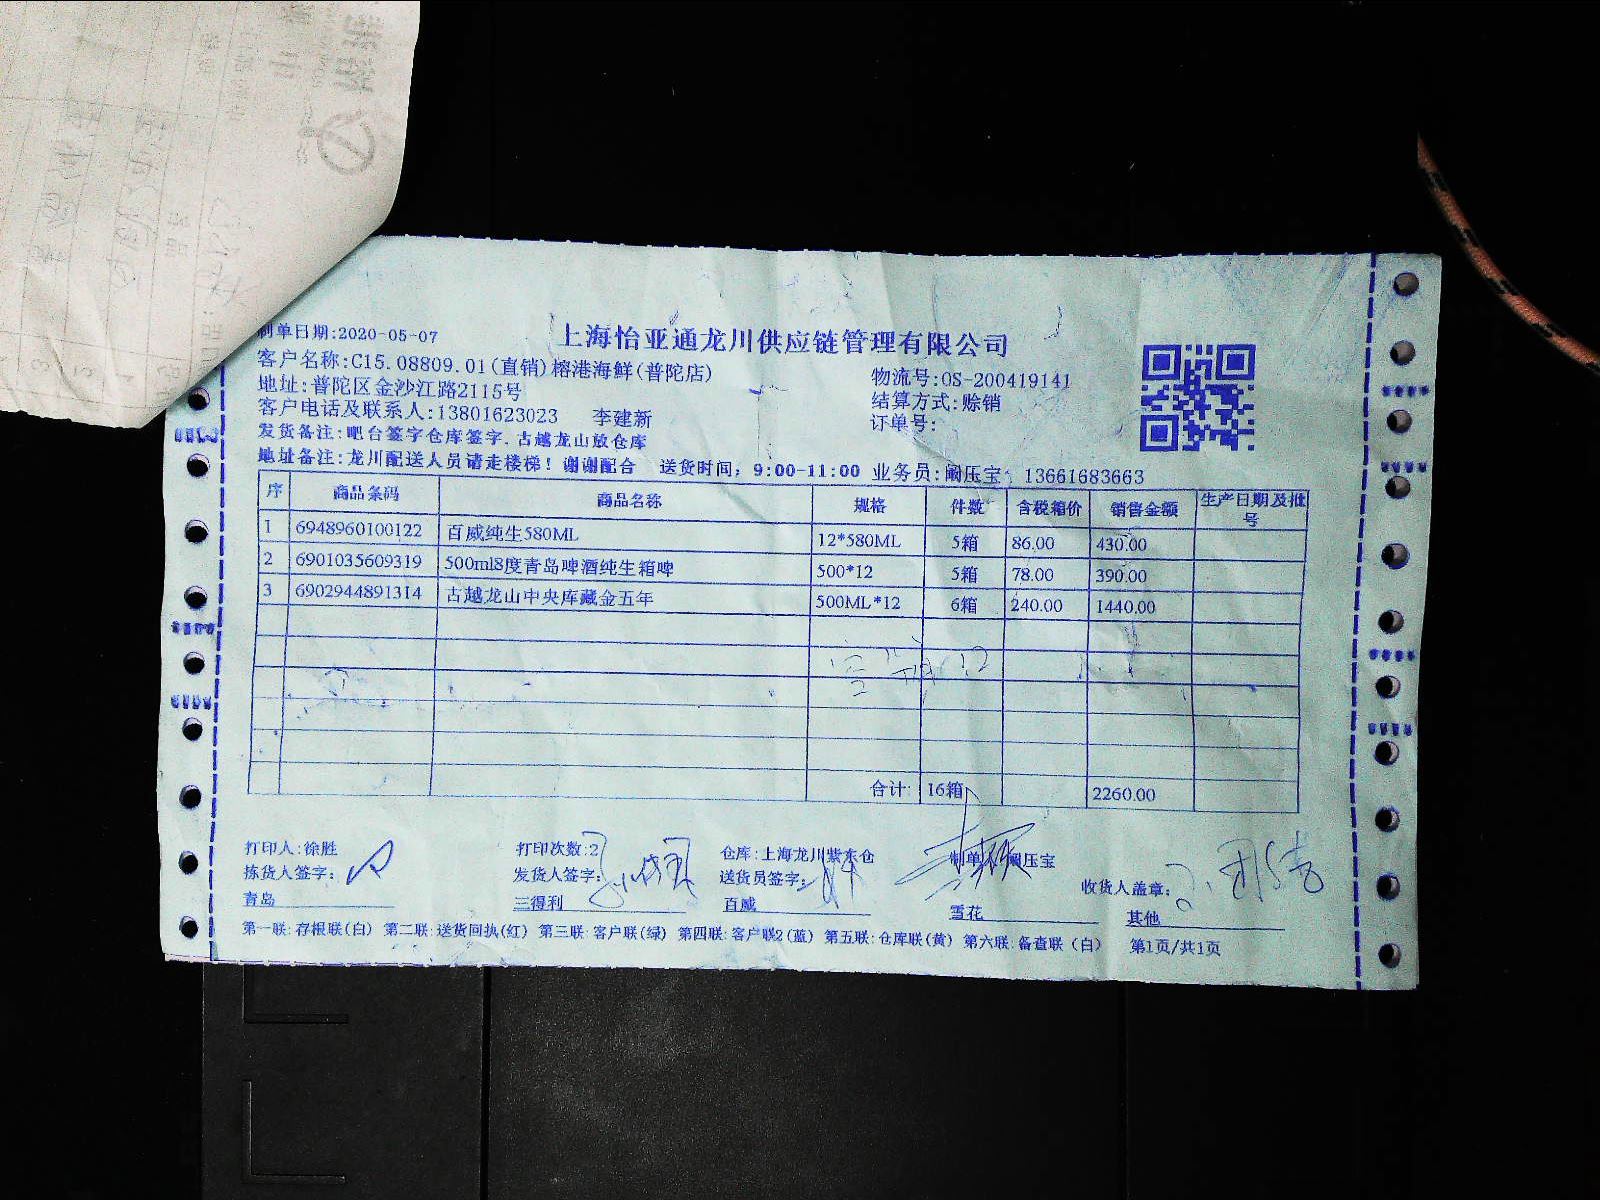 制单日期:2020-05-07
上海怡亚通龙川供应链管理有限公司
客户名称:C15.08809.01(直销)榕港海鲜(普陀店)
物流号:OS-200419141
地址:普陀区金沙江路2115号
结算方式:赊销
客户电话及联系人:13801623023 李建新
订单号:
发货备注:吧台签字仓库签字.古越龙山放仓库
地址备注:龙川配送人员请走楼梯!谢谢配合 送货时间,9:00-11:00 业务员:阚压宝 13661683663
序 商品条码 商品名称 规格 件数 含税箱价 销售金额 生产日期及批号
1 6948960100122 百威纯生580ML 12*580ML 5箱 86.00 430.00
2 6901035609319 500ml8度青岛啤酒纯生箱啤 500*12 5箱 78.00 390.00
3 6902944891314 古越龙山中央库藏金五年 500ML*12 6箱 240.00 1440.00
合计: 16箱 2260.00
打印人:徐胜 打印次数:2 仓库:上海龙川紫东仓 制单 阚压宝
拣货人签字: 发货人签字: 送货员签字: 收货人盖章:
青岛 三得利 百威 雪花 其他
第一联:存根联(白) 第二联:送货回执(红) 第三联:客户联(绿) 第四联:客户联2(蓝) 第五联:仓库联(黄) 第六联:备查联(白) 第1页/共1页